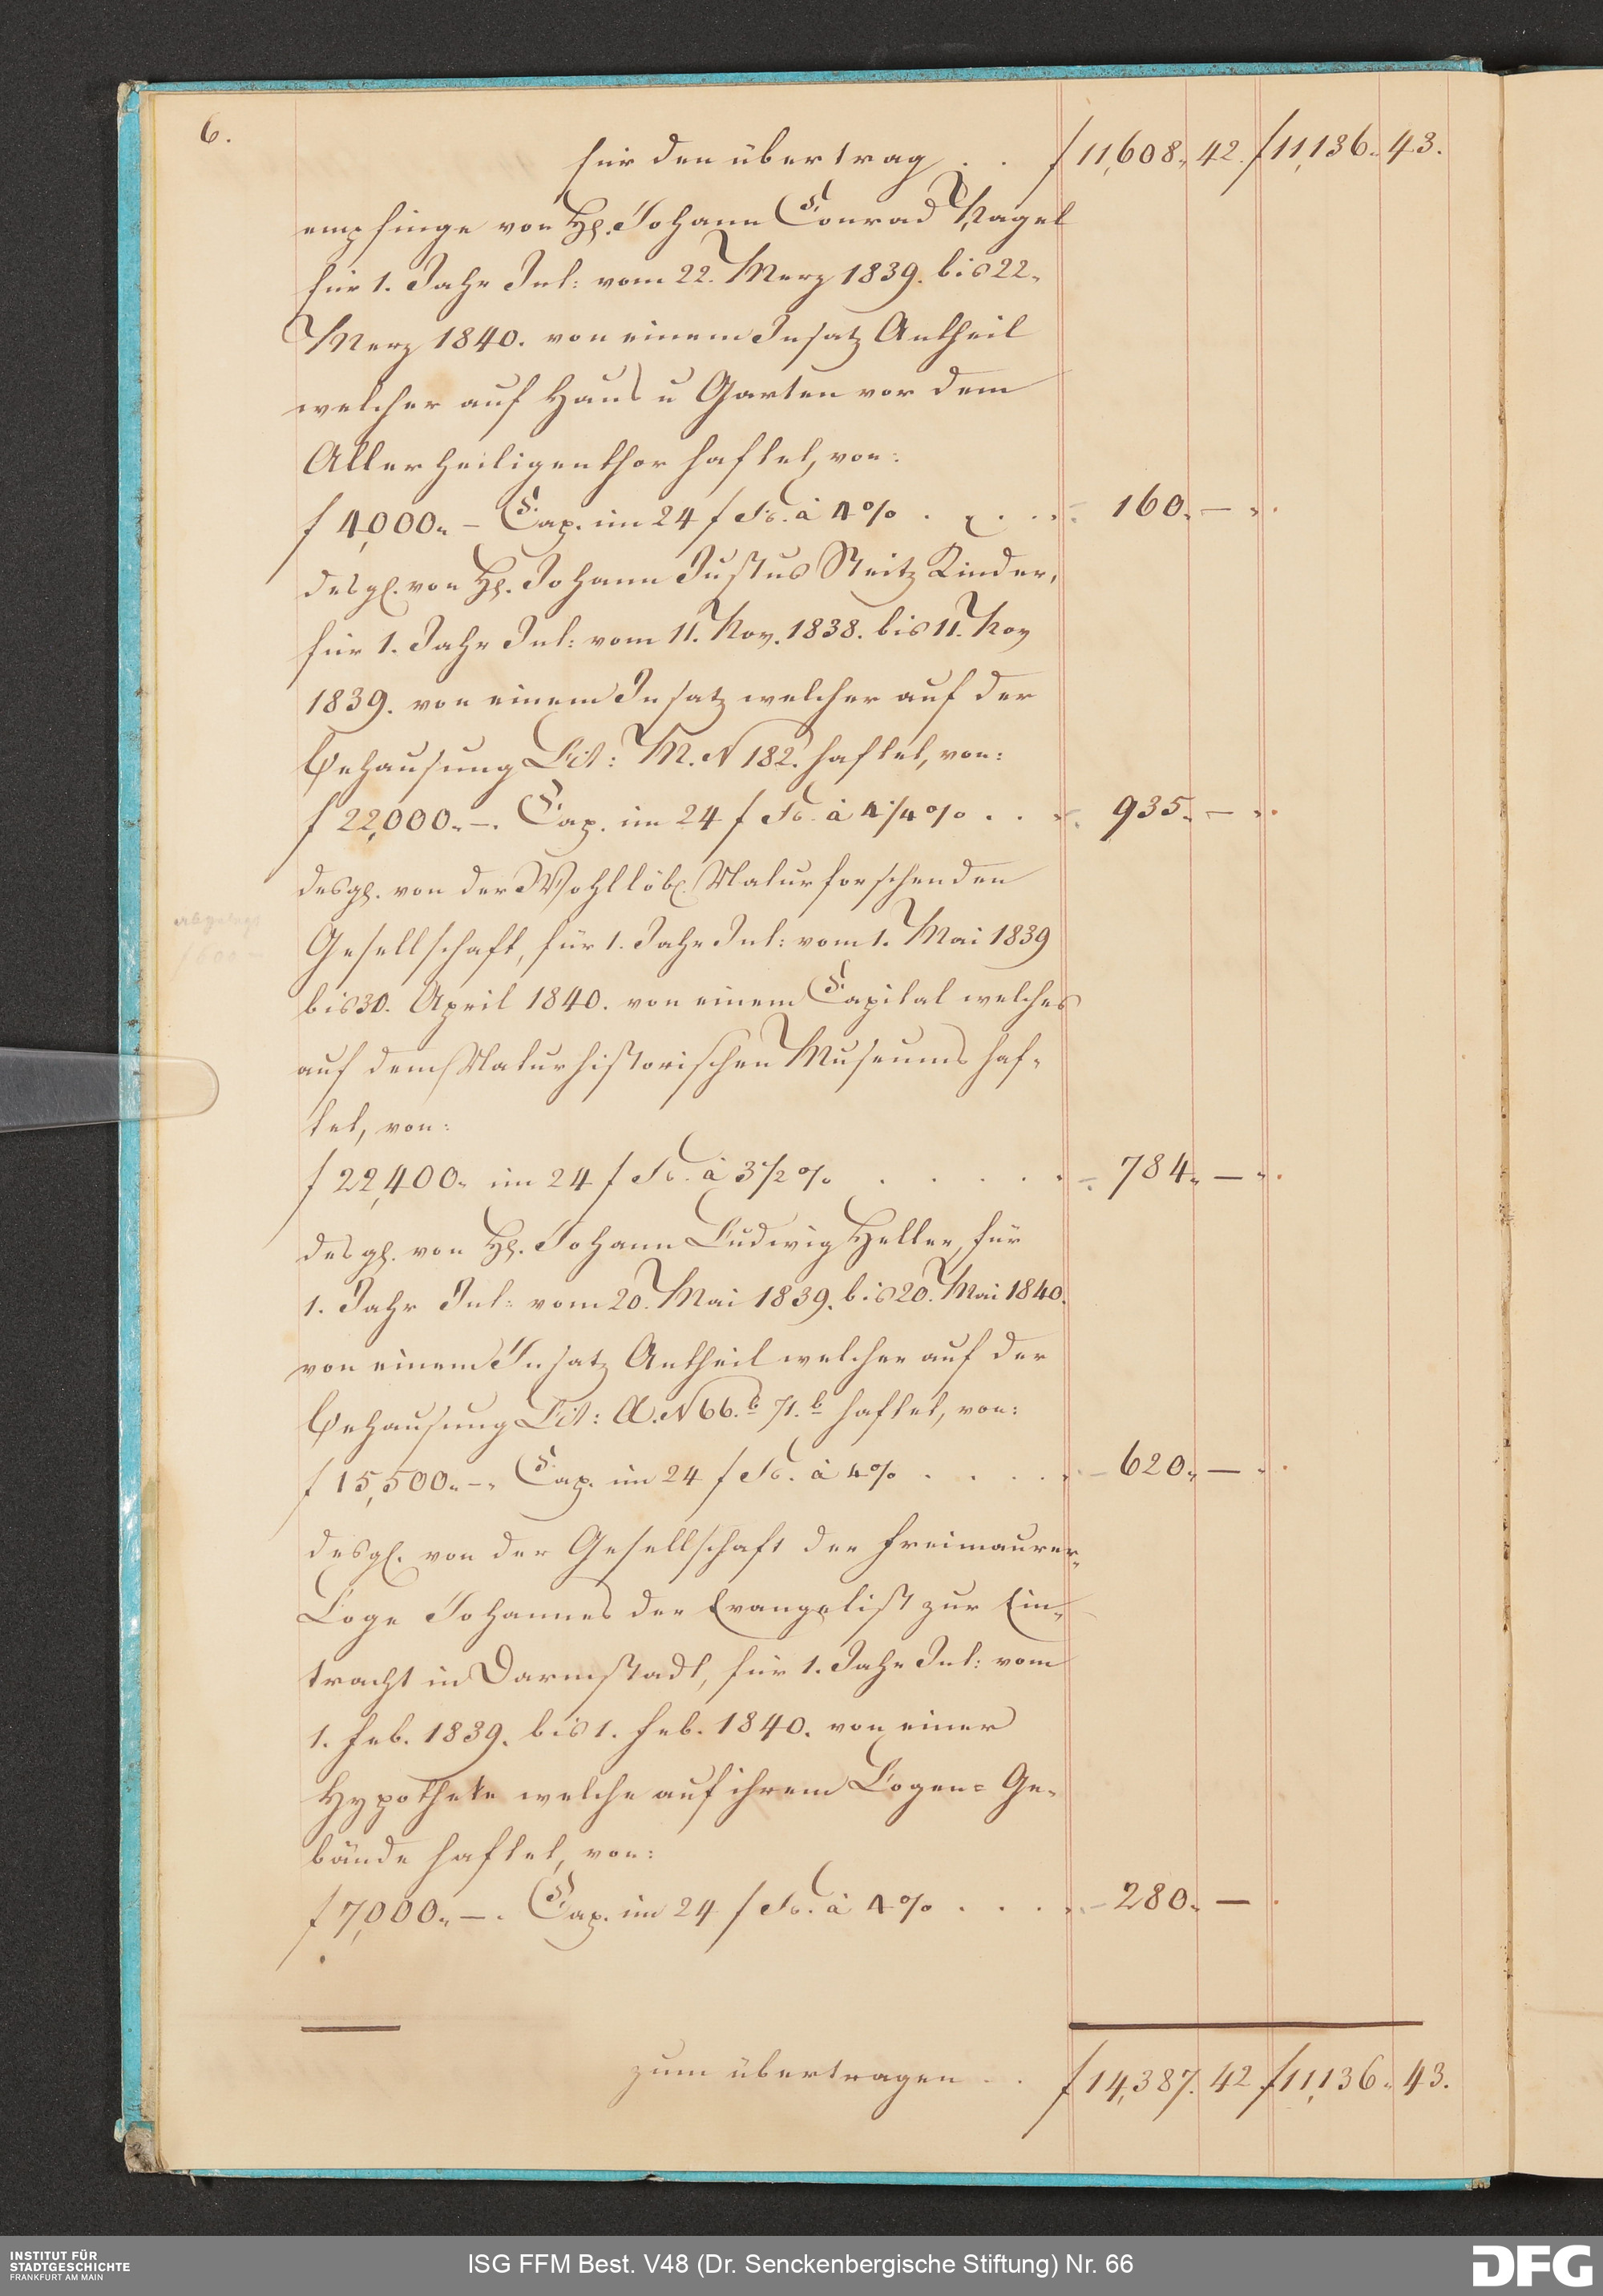 6.
für den übertrag . . f 11,608. 42. f 11,136. 43.
empfinge von H. Johann Conrad Nagel
für 1. Jahr Int: vom 22. Merz 1839. bis 22.
Merz 1840. von einem Insatz Antheil
welcher auf Haus u Garten vor dem
Allerheiligenthor haftet, von:
f 4,000.- Cap. im 24 f Fs. à 4% . . . . 160. —
desgl. von H. Johann Justus Steitz Kinder,
für 1. Jahr Int: vom 11. Nov. 1838. bis 11. Nov
1839. von einem Insatz welcher auf der
Behausung Lit: M. N 182. haftet, von:
f 22,000.-. Cap. im 24 f Fs. à 4 1/4% . . . 935. —
desgl. von der Wohllöbl. Naturforschenden
Gesellschaft, für 1. Jahr Int: vom 1. Mai 1839
bis 30. April 1840. von einem Capital welches
auf dem Naturhistorischen Museums haf-
tet, von:
f 22,400. im 24 f Fs. à 3 1/2% . . . . . 784. —
desgl. von H. Johann Ludwig Heller, für
1. Jahr Int: vom 20. Mai 1839. bis 20. Mai 1840.
von einem Insatz Antheil welcher auf der
Behausung Lit: A. N 66.b 71.b haftet, von:
f 15,500.-. Cap. im 24 f Fs. à 4% . . . . 620. —
desgl. von der Gesellschaft der Freimaurer-
Loge Johannes der Evangelist zur Ein-
tracht in Darmstadt, für 1. Jahr Int: vom
1. Feb. 1839. bis 1. Feb. 1840. von einer
Hypotheke welche auf ihrem Logen-Ge-
bäude haftet, von:
f 7,000.-. Cap. im 24 f Fs. à 4% . . . . 280. —
zum übertragen . . f 14,387. 42 f 11,136. 43.
INSTITUT FÜR
STADTGESCHICHTE
FRANKFURT AM MAIN
ISG FFM Best. V48 (Dr. Senckenbergische Stiftung) Nr. 66
DFG